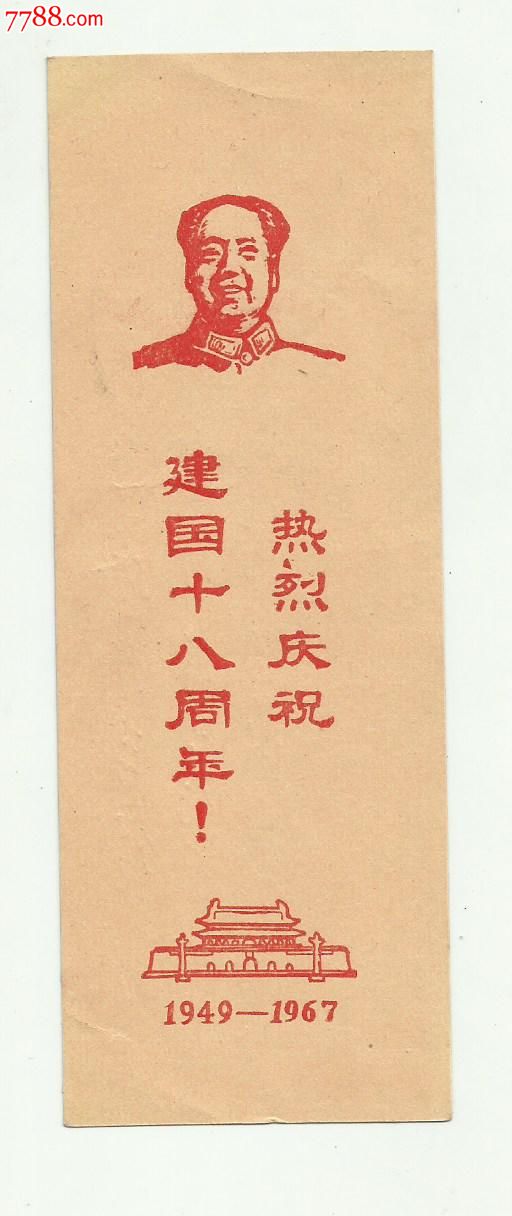 7788.com
热烈庆祝
建国十八周年！
1949—1967